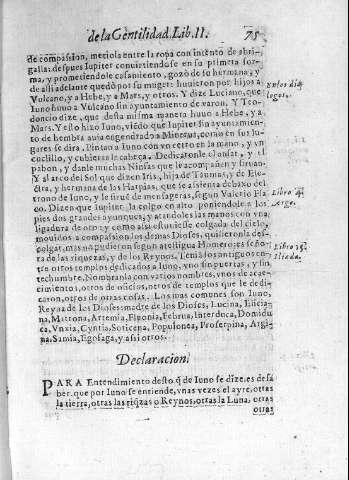 de la Gentilidad. Lib. II. 75
de compasion, metiola entre la ropa con intento de abri-
galla: despues Iupiter convirtiendose en su primera for-
ma, y prometiendole casamiento, gozò de su hermana, y
de alli adelante quedò por su muger: huuieron por hijos a
Vulcano, y a Hebe, y a Mars, y otros. Y dize Luciano, que
Iuno huuo a Vulcano sin ayuntamiento de varon. Y Teo-
doncio dize, que desta misma manera huuo a Hebe, y a
Mars. Y esto hizo Iuno, viẽdo que Iupiter sin ayuntamien-
to de hembra auia engendrado a Minerua, como en sus lu-
gares se dira. Pintanla con vn cetro en la mano, y vn
cuchillo, y cubierta la cabeça. Dedicaronle el ansar, y el
pabon, y danle muchas Ninfas que le acompañen y siruan.
Y al arco del Sol que dizen Iris, hija de Taumas, y de Ele-
ctra, y hermana de las Harpias, que le assienta debaxo del
trono de Iuno, y le siruè de mensageras, segun Valerio Fla
co. Dizen que Iupiter la colgò en alto poniendole a los
pies dos grandes ayunques, y atandole las manos con vna
ligadura de oro: y como assi estuuiesse colgada del cielo,
mouidos a compassion los demas Dioses, quisieronla des-
colgar, mas no pudieron segun atestigua Homero: es señora
de las riquezas, y de los Reynos. Tenia los antiguos en-
tre otros templos dedicados a Iuno, vno sin puertas, y sin
techumbre. Nombranla con varios nombres, vnos de acae-
cimientos, otros de oficios, otros de templos que le dedi-
caron, otros de otras cosas. Los mas comunes son Iuno,
Reyna de los Dioses: madre de los Dioses, Lucina,
Matrona, Artemia, Februa, Interduca, Domidu
ca, Vnxia, Cyntia, Soticena, Populonea, Proserpina, Argi-
na, Samia, Egofaga, y assi otros.
En los dia
logos.
Libro
Argo.
Libro
Iliada.
Declaracion.
PARA Entendimiento desto q̃ de Iuno se dize: es de sa
ber, que por Iuno se entiende, vnas vezes el ayre: otras
la tierra, otras las riq̃zas o Reynos, otras la Luna, otras
otras